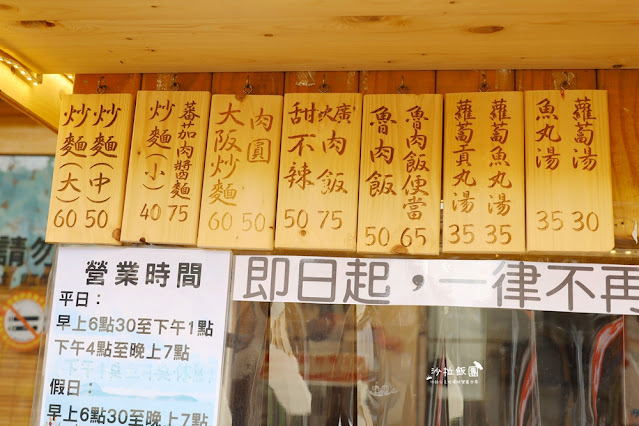 蘿蔔湯 30
魚丸湯 35
蘿蔔魚丸湯 35
蘿蔔貢丸湯 35
魯肉飯便當 65
魯肉飯 50
廣吹肉飯 75
甜不辣 50
肉圓 50
大阪炒麵 60
蕃茄肉醬麵 75
炒麵(小) 40
炒麵(中) 50
炒麵(大) 60
請勿
營業時間
平日：
早上6點30至下午1點
下午4點至晚上7點
假日：
早上6點30至晚上7點
即日起，一律不再
沙拉飯圈